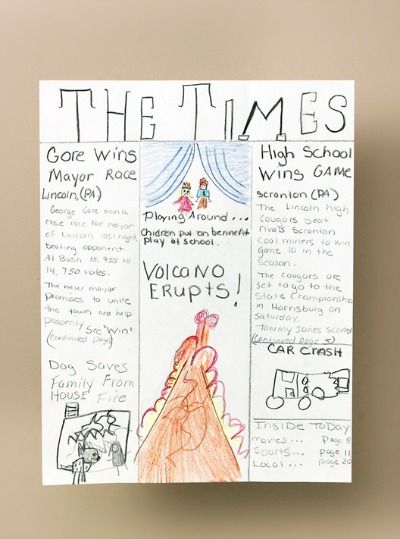 THE TIMES
Gore Wins
Mayor Race
Lincoln, (PA)
George Gore won a
close race for mayor
of Lincoln last night
beating opponent
Al Bush 15,955 to
14,750 votes.
The new mayor
Promises to unite
the town and help
prosperity. See "Win"
(continued page)
Dog Saves
Family From
House Fire
Playing Around...
Children put on bennefit
play at school.
VOLCANO
ERUPTS!
High School
Wins GAME
Scranton (PA)
The Lincoln high
Cougars beat
rivals Scranton
Coal miners to win
game 10 in the
season.
The cougars are
set to go to the
State Championship
in Harrisburg on
Saturday.
Tommy Jones Scored
(continued page 5)
CAR CRASH
Inside Today
movies... Page 8
Sports... page 11
Local... page 20